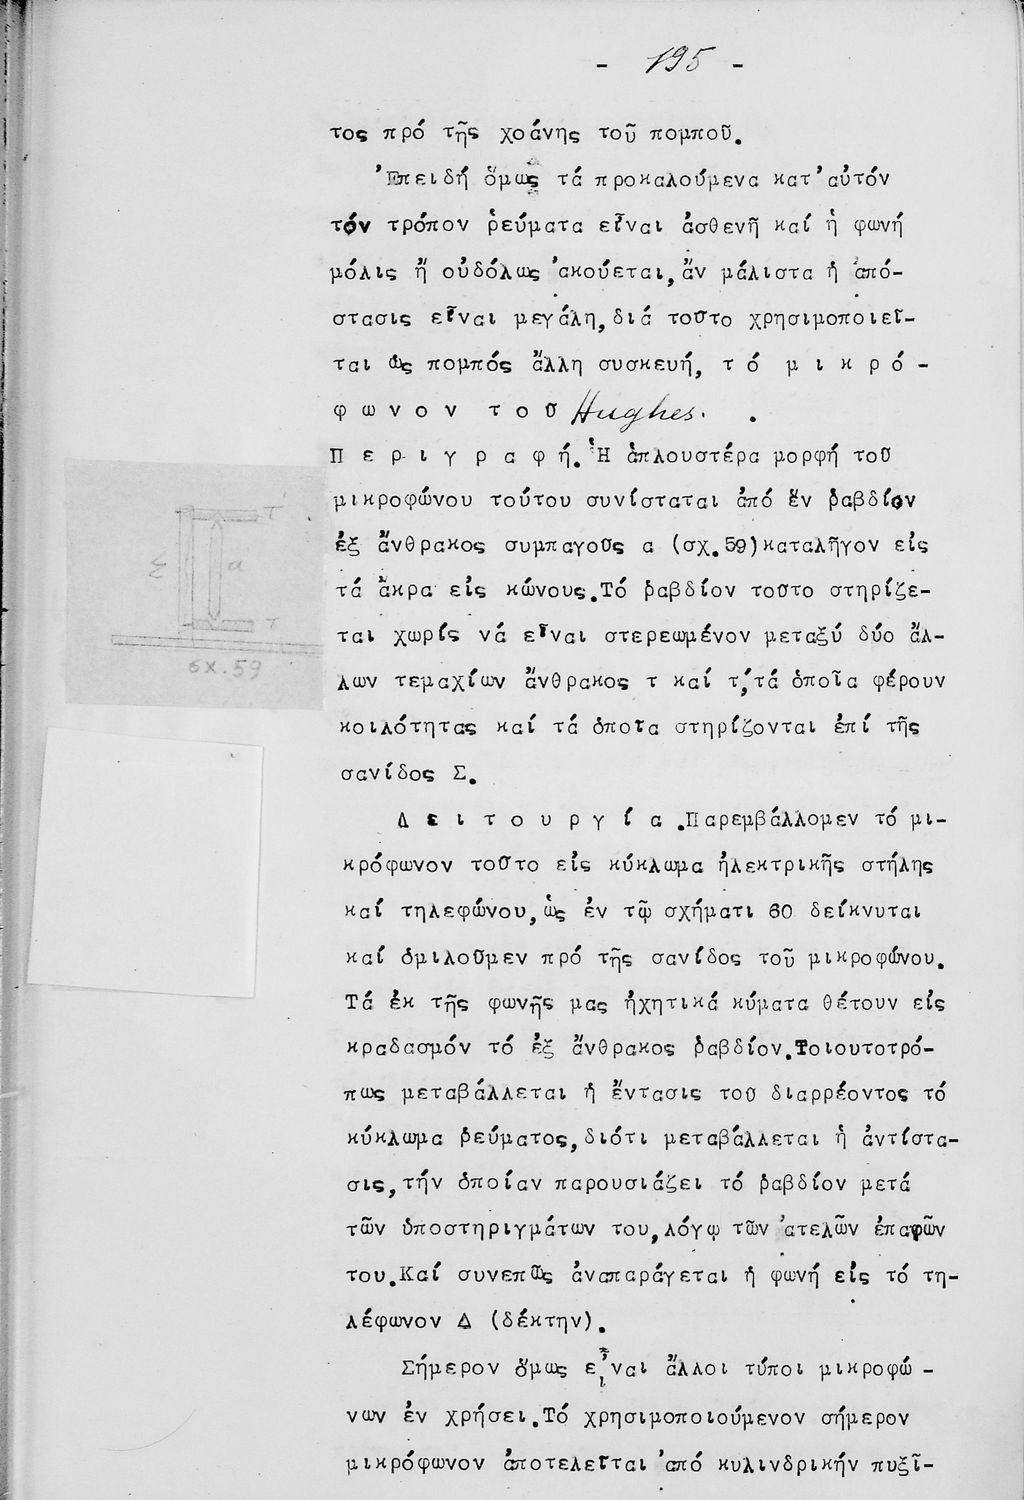 - 195 -
τος πρό τῆς χοάνης τοῦ πομποῦ.
Ἐπειδή ὅμως τά προκαλούμενα κατ' αὐτόν
τόν τρόπον ῥεύματα εἶναι ἀσθενῆ καί ἡ φωνή
μόλις ἤ οὐδόλως ἀκούεται, ἄν μάλιστα ἡ ἀπό-
στασις εἶναι μεγάλη, διά τοῦτο χρησιμοποιεῖ-
ται ὡς πομπός ἄλλη συσκευή, τ ό μ ι κ ρ ό -
φ ω ν ο ν τ ο ῦ Hughes.
Π ε ρ ι γ ρ α φ ή. Ἡ ἁπλουστέρα μορφή τοῦ
μικροφώνου τούτου συνίσταται ἀπό ἕν ῥαβδίον
ἐξ ἄνθρακος συμπαγοῦς α (σχ. 59) καταλῆγον εἰς
τά ἄκρα εἰς κώνους. Τό ῥαβδίον τοῦτο στηρίζε-
ται χωρίς νά εἶναι στερεωμένον μεταξύ δύο ἄλ-
λων τεμαχίων ἄνθρακος τ καί τ', τά ὁποῖα φέρουν
κοιλότητας καί τά ὁποῖα στηρίζονται ἐπί τῆς
σανίδος Σ.
Τ'
Σ
α
Τ
σχ. 59
Λ ε ι τ ο υ ρ γ ί α. Παρεμβάλλομεν τό μι-
κρόφωνον τοῦτο εἰς κύκλωμα ἠλεκτρικῆς στήλης
καί τηλεφώνου, ὡς ἐν τῷ σχήματι 60 δείκνυται
καί ὁμιλοῦμεν πρό τῆς σανίδος τοῦ μικροφώνου.
Τά ἐκ τῆς φωνῆς μας ἠχητικά κύματα θέτουν εἰς
κραδασμόν τό ἐξ ἄνθρακος ῥαβδίον. Τοιουτοτρό-
πως μεταβάλλεται ἡ ἔντασις τοῦ διαρρέοντος τό
κύκλωμα ῥεύματος, διότι μεταβάλλεται ἡ ἀντίστα-
σις, τήν ὁποίαν παρουσιάζει τό ῥαβδίον μετά
τῶν ὑποστηριγμάτων του, λόγῳ τῶν ἀτελῶν ἐπαφῶν
του. Καί συνεπῶς ἀναπαράγεται ἡ φωνή εἰς τό τη-
λέφωνον Δ (δέκτην).
Σήμερον ὅμως εἶναι ἄλλοι τύποι μικροφώ -
νων ἐν χρήσει. Τό χρησιμοποιούμενον σήμερον
μικρόφωνον ἀποτελεῖται ἀπό κυλινδρικήν πυξῖ-